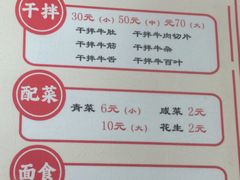 干拌
30元(小) 50元(中) 元70(大)
干拌牛肚 干拌牛肉切片
干拌牛筋 干拌牛杂
干拌牛舌 干拌牛百叶
配菜
青菜 6元(小) 咸菜 2元
10元(大) 花生 2元
面食